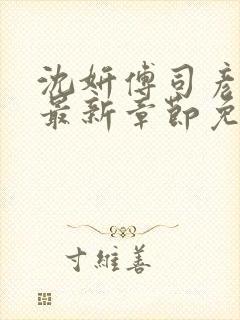 沈妍傅司彦
最新章节免
寸維善